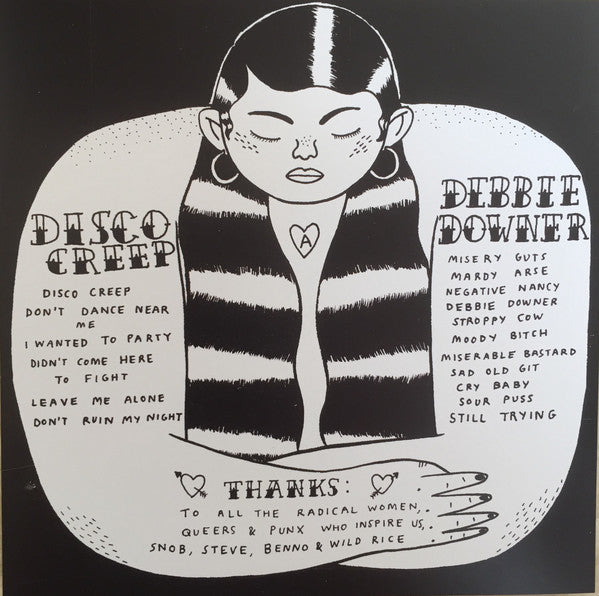 DISCO
CREEP
DISCO CREEP
DON'T DANCE NEAR
ME
I WANTED TO PARTY
DIDN'T COME HERE
TO FIGHT
LEAVE ME ALONE
DON'T RUIN MY NIGHT
A
DEBBIE
DOWNER
MISERY GUTS
MARDY ARSE
NEGATIVE NANCY
DEBBIE DOWNER
STROPPY COW
MOODY BITCH
MISERABLE BASTARD
SAD OLD GIT
CRY BABY
SOUR PUSS
STILL TRYING
THANKS:
TO ALL THE RADICAL WOMEN,
QUEERS & PUNX WHO INSPIRE US,
SNOB, STEVE, BENNO & WILD RICE